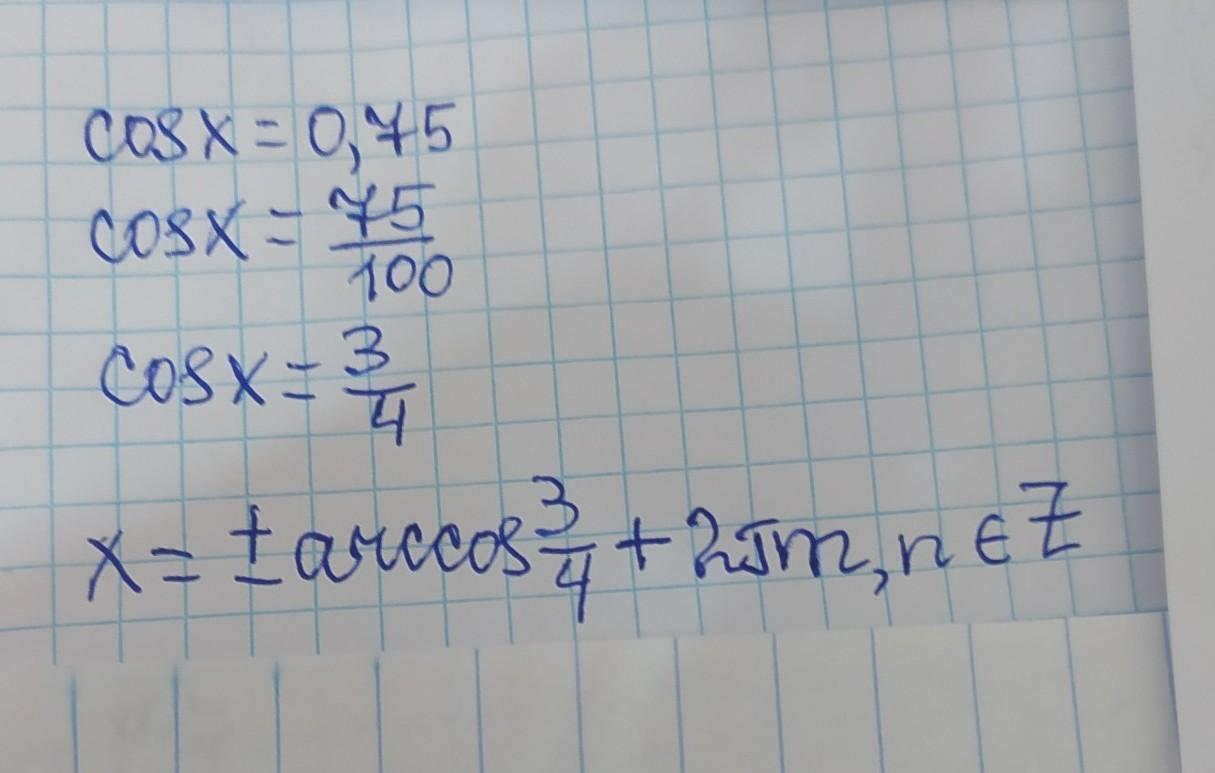 cosx = 0,75
cosx = 75/100
cosx = 3/4
x = ± arccos 3/4 + 2πn, n ∈ Z